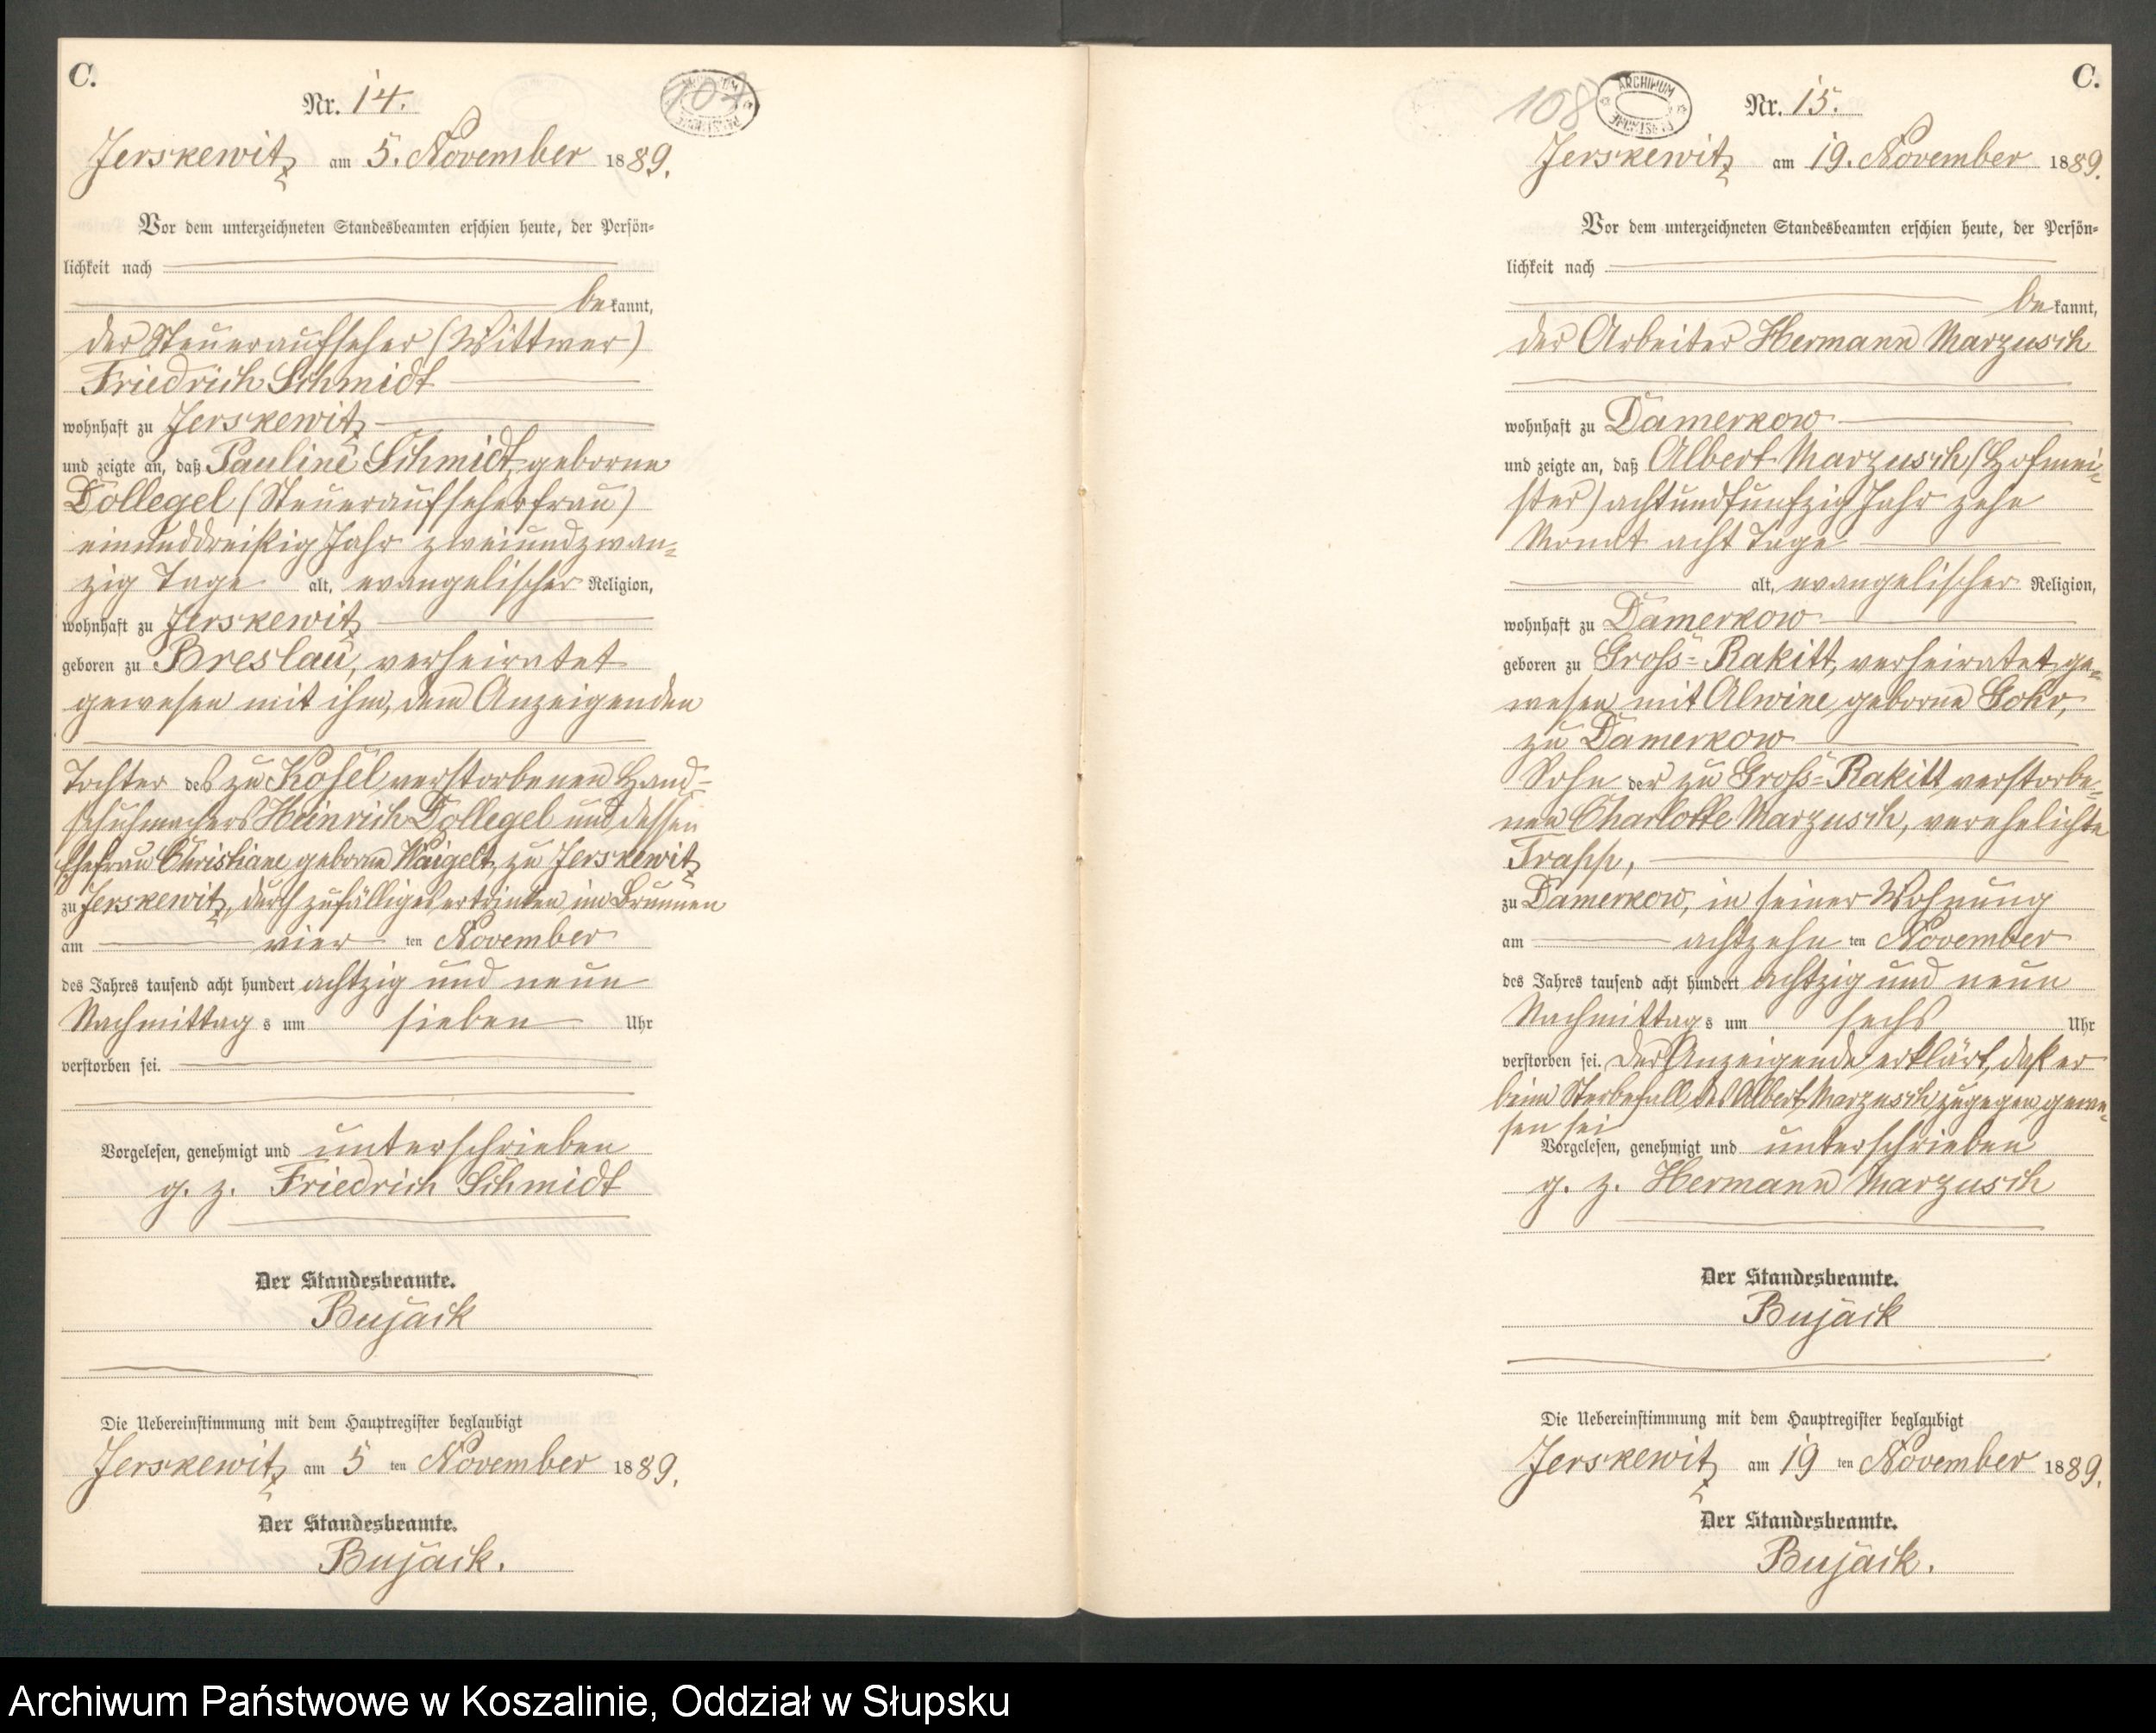 C.
Nr. 14.
107
Jerskewitz am 5. November 1889.
Vor dem unterzeichneten Standesbeamten erschien heute, der Persön-
lichkeit nach
bekannt,
der Steueraufseher (Wittwer)
Friedrich Schmidt
wohnhaft zu Jerskewitz
und zeigte an, daß Pauline Schmidt, geborne
Dollegel (Steueraufseherfrau)
einunddreißig Jahr zweiundzwan-
zig Tage alt, evangelischer Religion,
wohnhaft zu Jerskewitz
geboren zu Breslau, verheiratet
gewesen mit ihm, dem Anzeigenden
Tochter des zu Kosel verstorbenen Hand-
schuhmachers Heinrich Dollegel und dessen
Ehefrau Christiane geborne Waigelt, zu Jerskewitz
zu Jerskewitz, durch zufälliges ertrinken im Brunnen
am vier ten November
des Jahres tausend acht hundert achtzig und neun
Nachmittag s um sieben Uhr
verstorben sei.
Vorgelesen, genehmigt und unterschrieben
g. z. Friedrich Schmidt
Der Standesbeamte.
Bujack
Die Uebereinstimmung mit dem Hauptregister beglaubigt
Jerskewitz am 5 ten November 1889.
Der Standesbeamte.
Bujack.
C.
108
ARCHIWUM
Nr. 15.
Jerskewitz am 19. November 1889.
Vor dem unterzeichneten Standesbeamten erschien heute, der Persön-
lichkeit nach
bekannt,
der Arbeiter Hermann Marzusch
wohnhaft zu Damerkow
und zeigte an, daß Albert Marzusch (Hofmei-
ster) achtundfunfzig Jahr zehn
Monat acht Tage
alt, evangelischer Religion,
wohnhaft zu Damerkow
geboren zu Groß-Rakitt, verheiratet ge-
wesen mit Alwine, geborne Gohr,
zu Damerkow
Sohn der zu Groß-Rakitt verstorbe-
nen Charlotte Marzusch, verehelichte
Trapp,
zu Damerkow, in seiner Wohnung
am achtzehn ten November
des Jahres tausend acht hundert achtzig und neun
Nachmittag s um sechs Uhr
verstorben sei. Der Anzeigende erklärt, daß er
beim Sterbefall des Albert Marzusch zugegen gewe-
sen sei
Vorgelesen, genehmigt und unterschrieben
g. z. Hermann Marzusch
Der Standesbeamte.
Bujack
Die Uebereinstimmung mit dem Hauptregister beglaubigt
Jerskewitz am 19 ten November 1889.
Der Standesbeamte.
Bujack.
Archiwum Państwowe w Koszalinie, Oddział w Słupsku